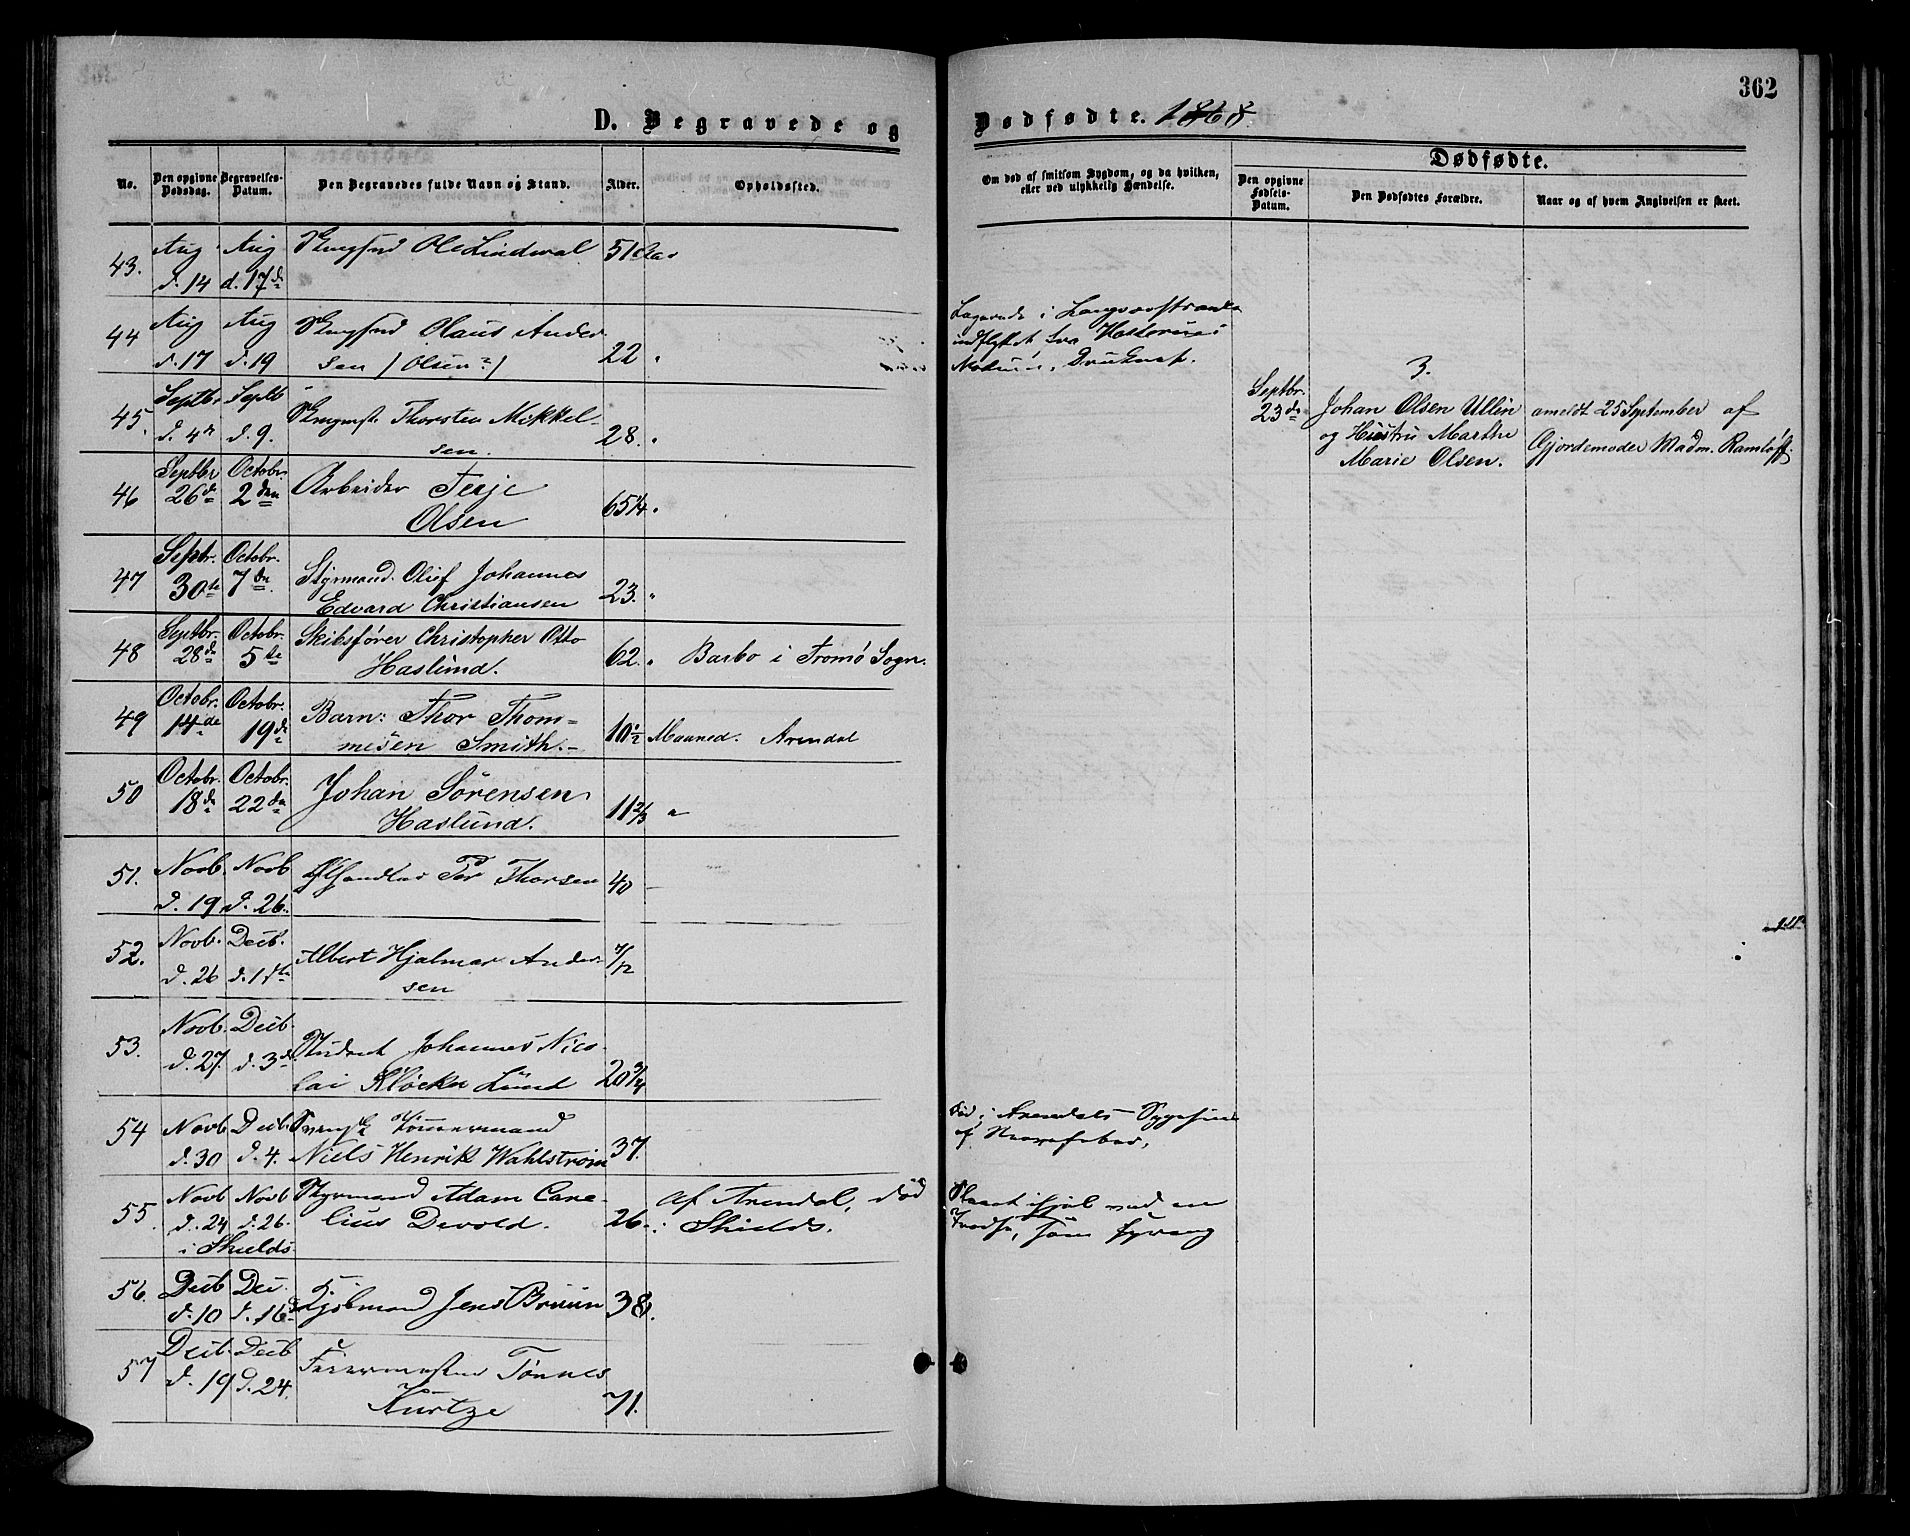 362
D. Begravede og Dødfødte. 1868.
Dødfødte.
No. Den opgivne Dødsdag. Begravelses-Datum. Den Begravedes fulde Navn og Stand. Alder. Opholdssted. Om død af smitsom Sygdom, og da hvilken, eller ved ulykkelig Hændelse. Den opgivne Fødsels-Datum. Den Dødfødtes Forældre. Naar og af hvem Angivelsen er skeet.
43. Aug Aug Ole Lindval 51 Aar
d. 14 d. 17d
44 Aug Aug Olaus Ander
d. 17 d. 19 sen / Olsen?) 22 "
Druknet.
45. Septbr Septb Thorsten Mikkel-
d. 4de d. 9. sen. 28. "
3.
Septbr. 23de Johan Olsen Ullin anmeldt 25 September af
og Hustru Marthe Gjordemoder Madm. Ramtøff.
Marie Olsen.
46 Septbr Octobr. Arbeider Terje
26de 2den Olsen 65 1/4 "
47 Septbr. Octobr. Styrmand. Oluf Johannes
30te 7de. Edvard Christiansen 23. "
48 Septbr. Octobr. Skibsfører Christopher Otto
28de 5te Haslund. 62. " Barbo i Tromø Sogn.
49 Octobr. Octobr. Barn: Thor Thom=
14de 19de mesen Smith.- 10 1/2 Maaned. Arendal
50 Octobr. Octobr. Johan Sørensen
18de 22de Haslund. 11 2/3 "
51. Novb. Novb Thorsen 40 -
d. 19 d. 26.
52. Novb. Decb. Albert Hjalmar Ander-
d. 26 d. 1ste sen 7/12
53. Novb. Decb. Student Johannes Nico-
d. 27. d. 3de lai Kløcker Lund 20 3/4
54 Novb. Decb. Svensk Tømmermand
d. 30 d. 4. Niels Henrik Wahlstrøm 37.
Død i Arendals Sygehuus
af
55. Novb Novb Styrmand Adam Corne-
d. 24 d. 26. lius Devold. 26. af Arendal, død
i Shields i Shields.
Slaaet ihjel ved en
som sprang
56. Decb Dec. Kjøbmand Jens Bruun 38.
d. 10 d. 16de
57 Decb. Decb Tønnes
d. 19 d. 24. Kurtze 71.